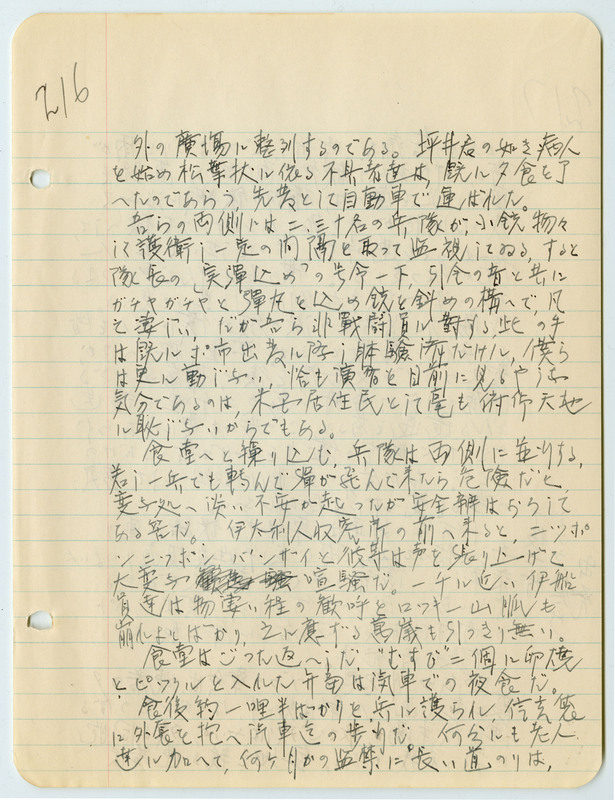 216
外の廣場に整列するのである。坪井君の如き病人
を始め松葉杖に依る不具者達は、既に夕食を了
へたのであらう、先発として自動車で運ばれた。
吾らの両側には二、三十名の兵隊が、小銃物々
しく護衛し一定の間隔を取って監視してゐる、すると
隊長の「実弾込め」の号令一下、引金の音と共に
ガチヤガチヤと弾丸を込め銃を斜めの構へで、凡
そ凄じい、だが吾ら非戰闘員に対する、此の手
は既にポ市出発に際し体験済だけに、僕ら
は更に動じない、恰も演習を目前に見るやうな
気分であるのは、米国居住民として尾も俯仰天地
に恥じないからでもある。
食堂へと繰り込む、兵隊は両側に並列する、
若し一兵でも転んで弾が飛んで来たら危険だと
変な処へ淡い不安が起ったが安全辨はおろして
ある筈だ。 伊太利人収容所の前へ来ると、ニッポ
ンニッポン バンザイと彼等は声を張り上げて
大変な 喧騒だ。一千に近い伊船
員達は物凄い程の歓呼とロッキー山脈も
崩れよとばかり、之に應ずる萬歳も引っきり無い。
食堂はごった返へしだ、"むすび"二個に卵焼
とピックルを入れた弁当は汽車での夜食だ。
食後約一哩半ばかりを、兵に護られ、信玄袋
に外套を抱へ汽車迄の歩行だ 何分にも老人
達に加へて、何ケ月かの監禁に"長い道のりは、